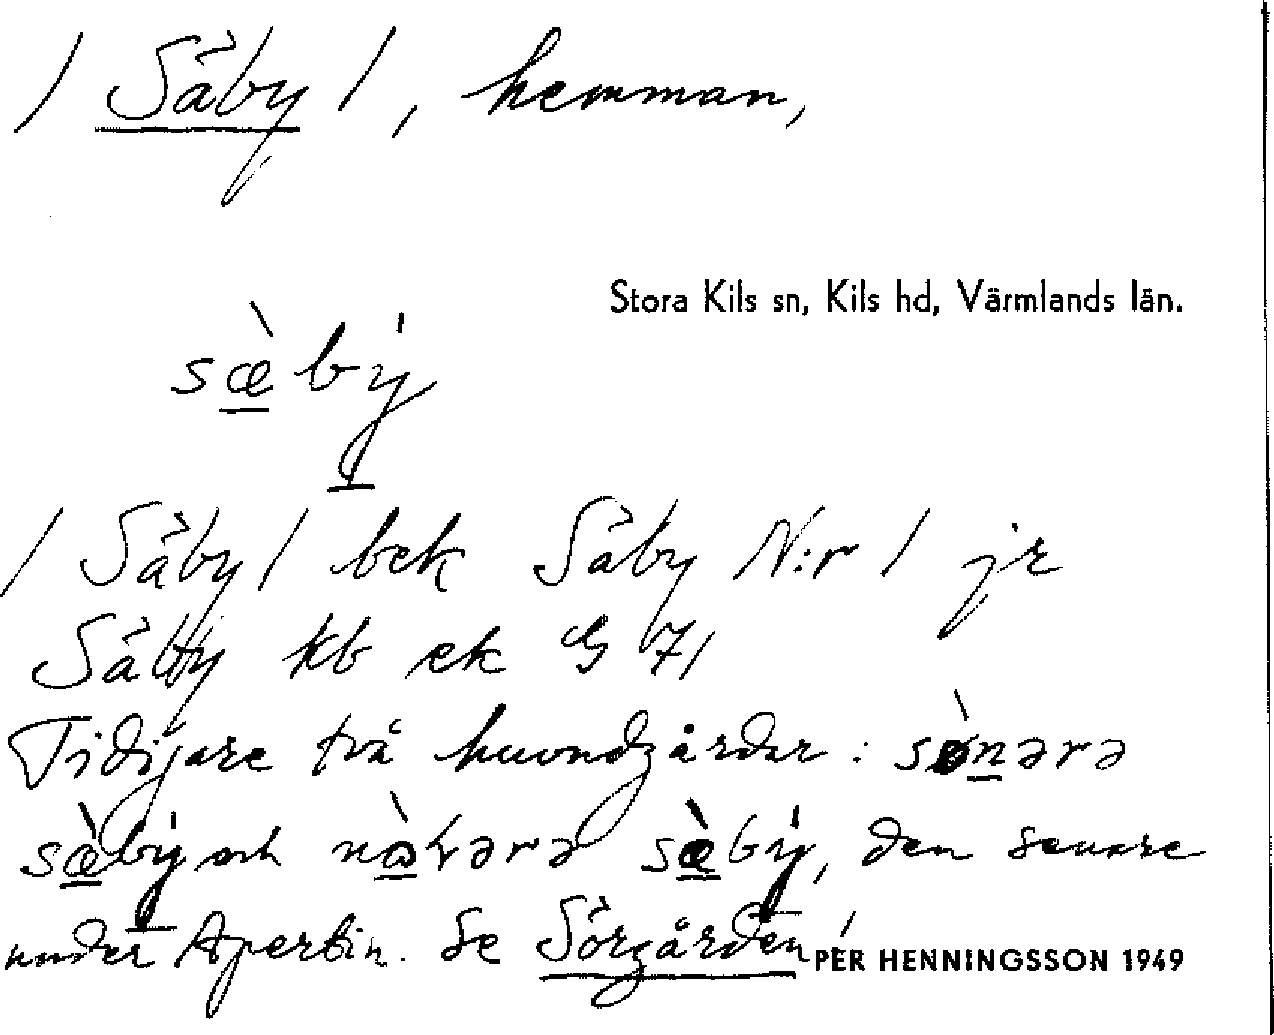 / Säby /, hemman,
Stora Kils sn, Kils hd, Värmlands län.
sæ̀bý
/ Säby / bek Säby N:r 1 jr
Säby kb ek G 71
Tidigare två huvudgårdar: sønərə
sæ̀bý och nɷ̀ɹərə sæ̀bý, den senare
under Apertin. Se Sörgården!
PER HENNINGSSON 1949